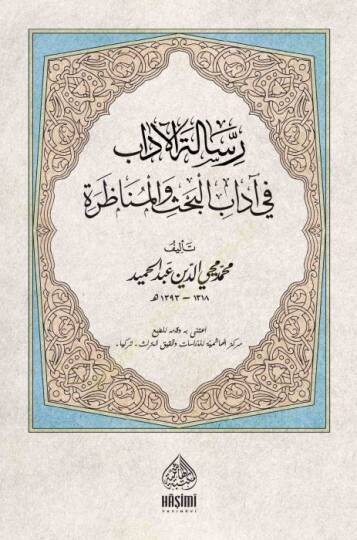 رسالة الآداب
في آداب البحث والمناظرة
تأليف
محمد محيي الدين عبد الحميد
١٣١٨ – ١٣٩٣ هـ
اعتنى به وقدمه للطبع
مركز الهاشمية للدراسات وتحقيق التراث - تركيا.
HÂŞİMİ
YAYINEVİ